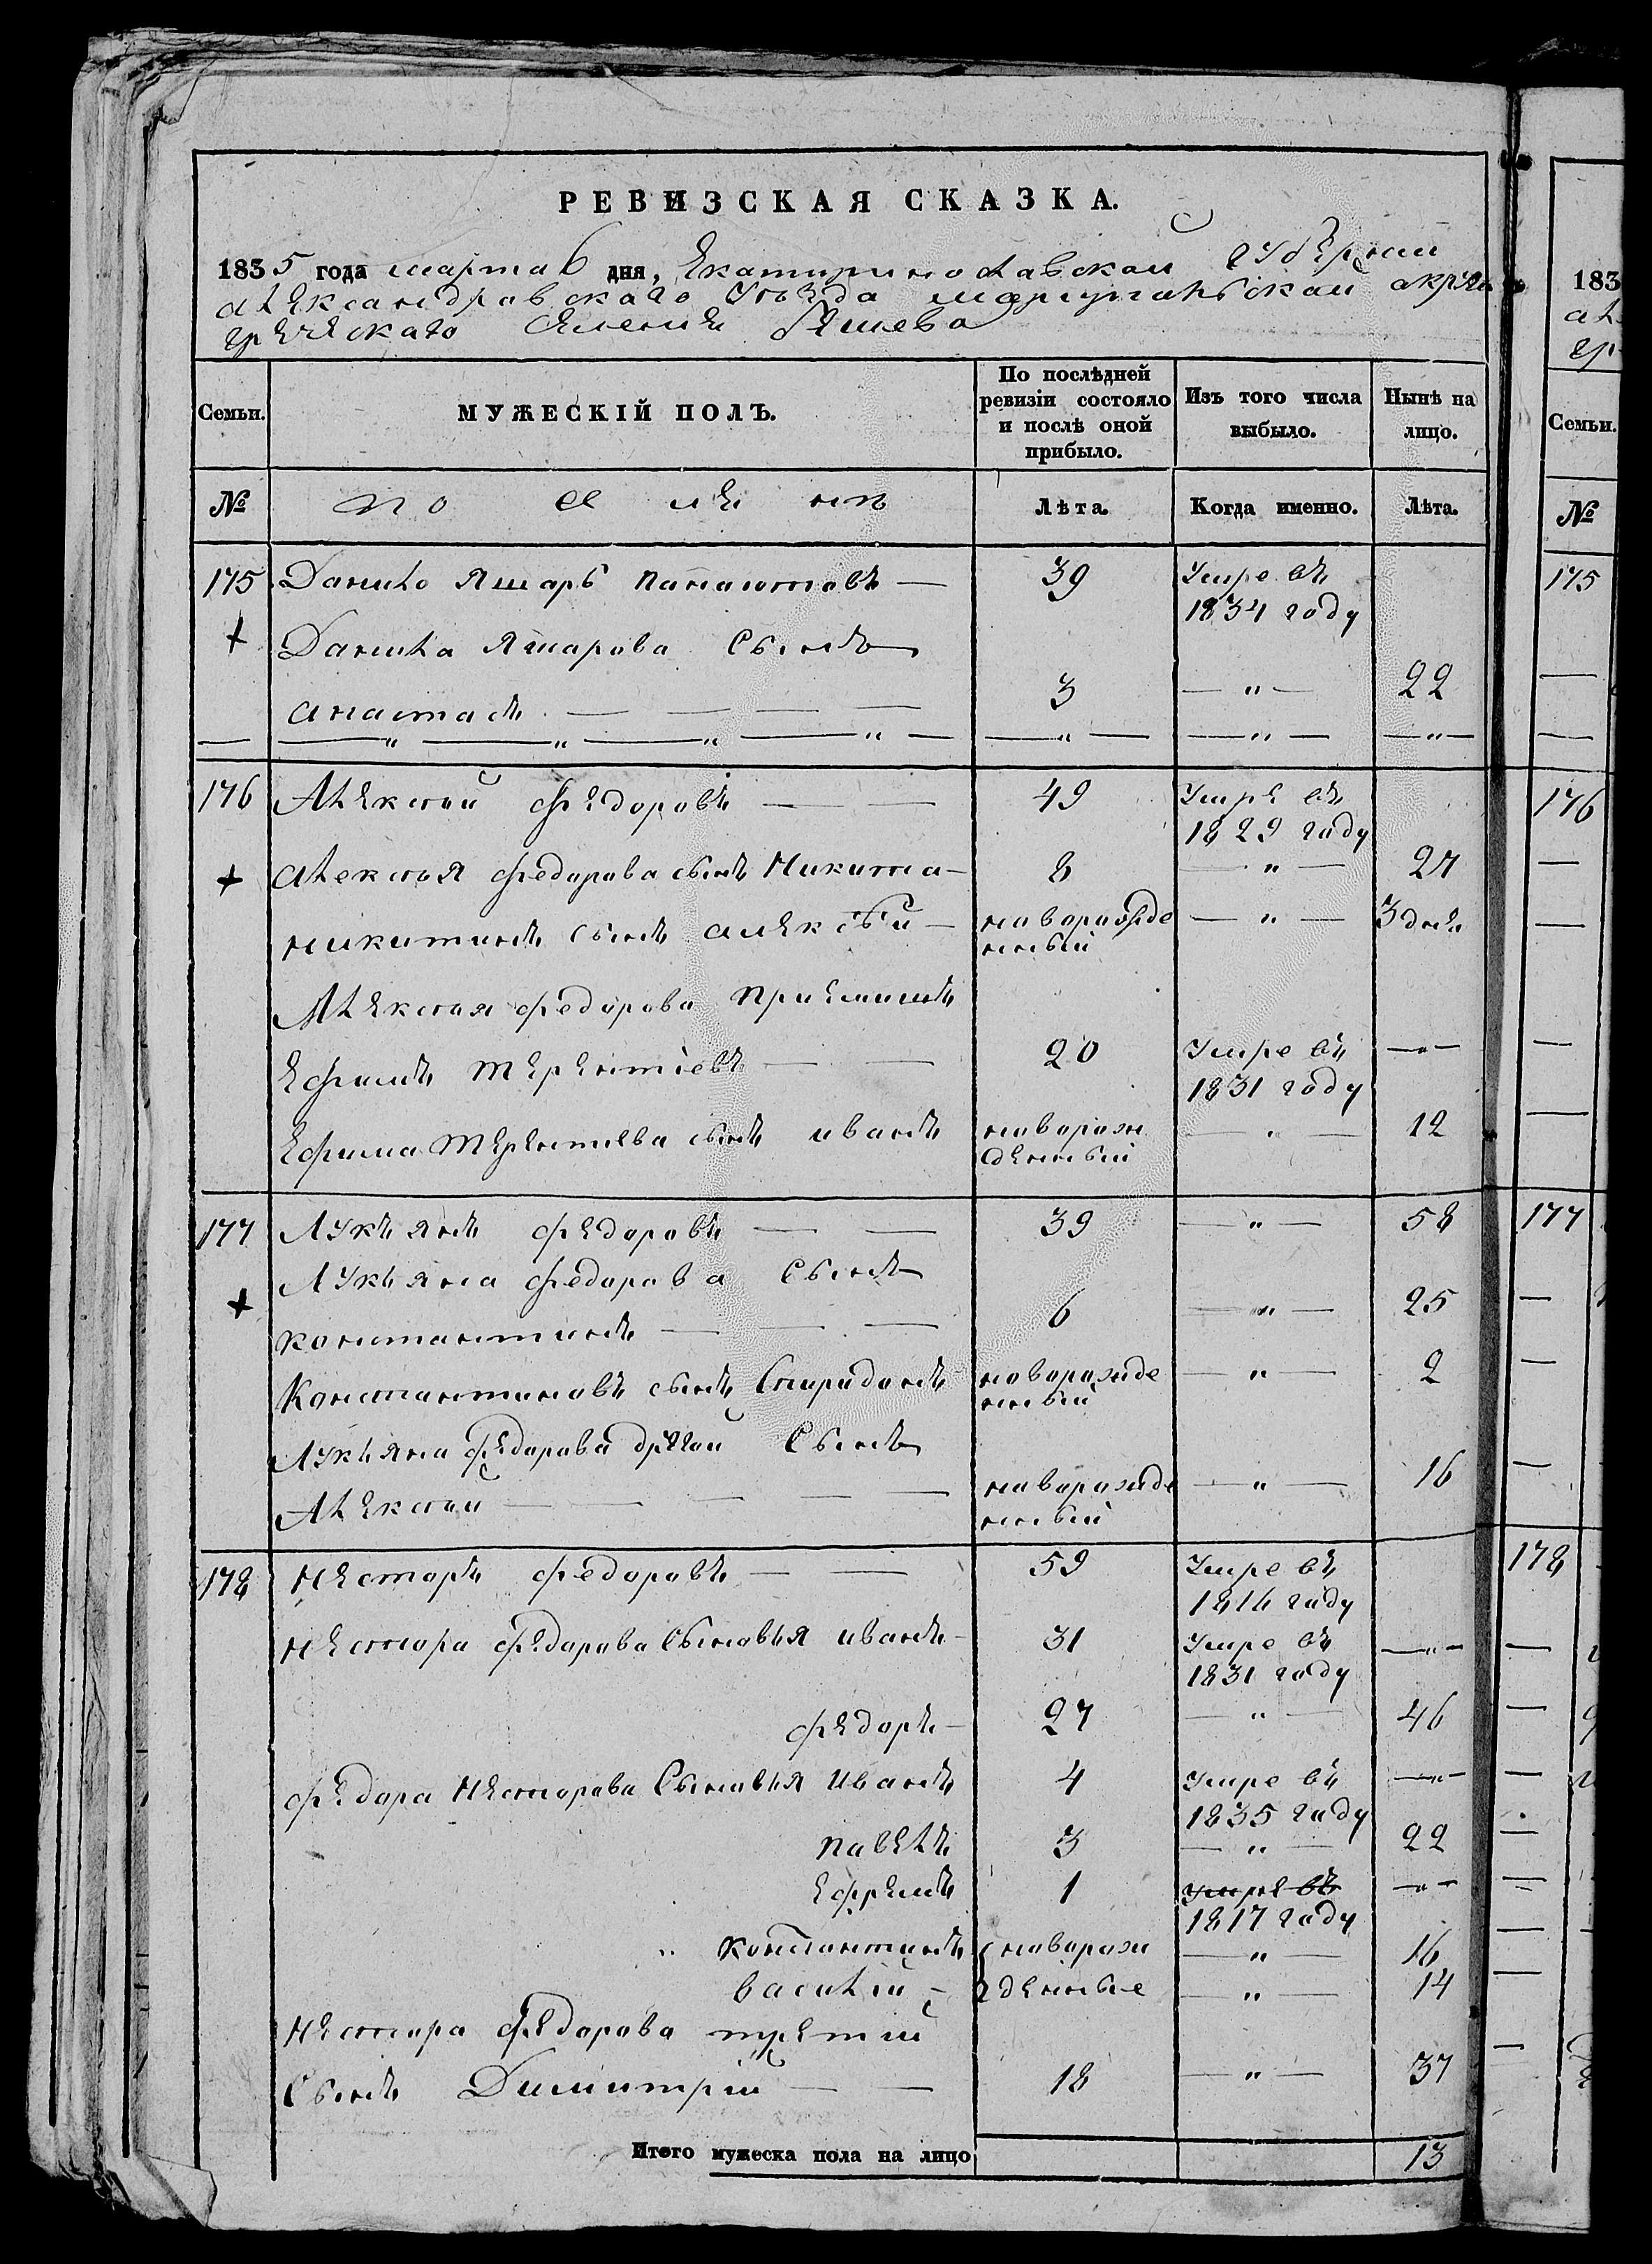 РЕВИЗСКАЯ СКАЗКА.
1835 года марта 6 дня, Екатеринославской губернии
александровскаго уезда мариупольской округи
греческаго селения
Семьи.
МУЖЕСКІЙ ПОЛЪ.
По послѣдней ревизіи состояло и послѣ оной прибыло.
Изъ того числа выбыло.
Нынѣ на лицо.
№
Лѣта.
Когда именно.
Лѣта.
175 Данило Яшаръ панаиотовъ — 39 Умре въ
1834 году
+ Данила Яшарова Сынъ
анастасъ — — — — 3 — " — 22
176 Алексей федоровъ — — 49 Умре въ
1829 году
+ алексея федорова сынъ Никита — 8 — " — 27
никитинъ сынъ алексѣй — новорожде — " — 3 дня
нный
Алексея федорова приемишъ
Ефимъ терентіевъ — — 20 Умре въ — " —
1831 году
Ефима терентиева сынъ иванъ новорож — " — 12
денный
177 Лукъянъ федоровъ — — 39 — " — 58
Лукьяна федорова Сынъ
+ константинъ — — — 6 — " — 25
Константиновъ сынъ Спиридонъ новорожде — " — 2
нный
Лукьяна федорова другой Сынъ
Алексей — — — — — новорожде — " — 16
нный
178 Несторъ федоровъ — — 59 Умре въ
1816 году
Нестора федорова Сыновья иванъ — 31 Умре въ — " —
1831 году
федоръ — 27 — " — 46
федора Несторова Сыновья Иванъ 4 Умре въ — " —
1835 году
павелъ 3 — " — 22
ефремъ 1 Умре въ — " —
1817 году
константинъ новорож — " — 16
василій — денные — " — 14
Нестора федорова третий
Сынъ Димитрій — — 18 — " — 37
Итого мужеска пола на лицо 13
183
Семьи.
№
175
176
177
178